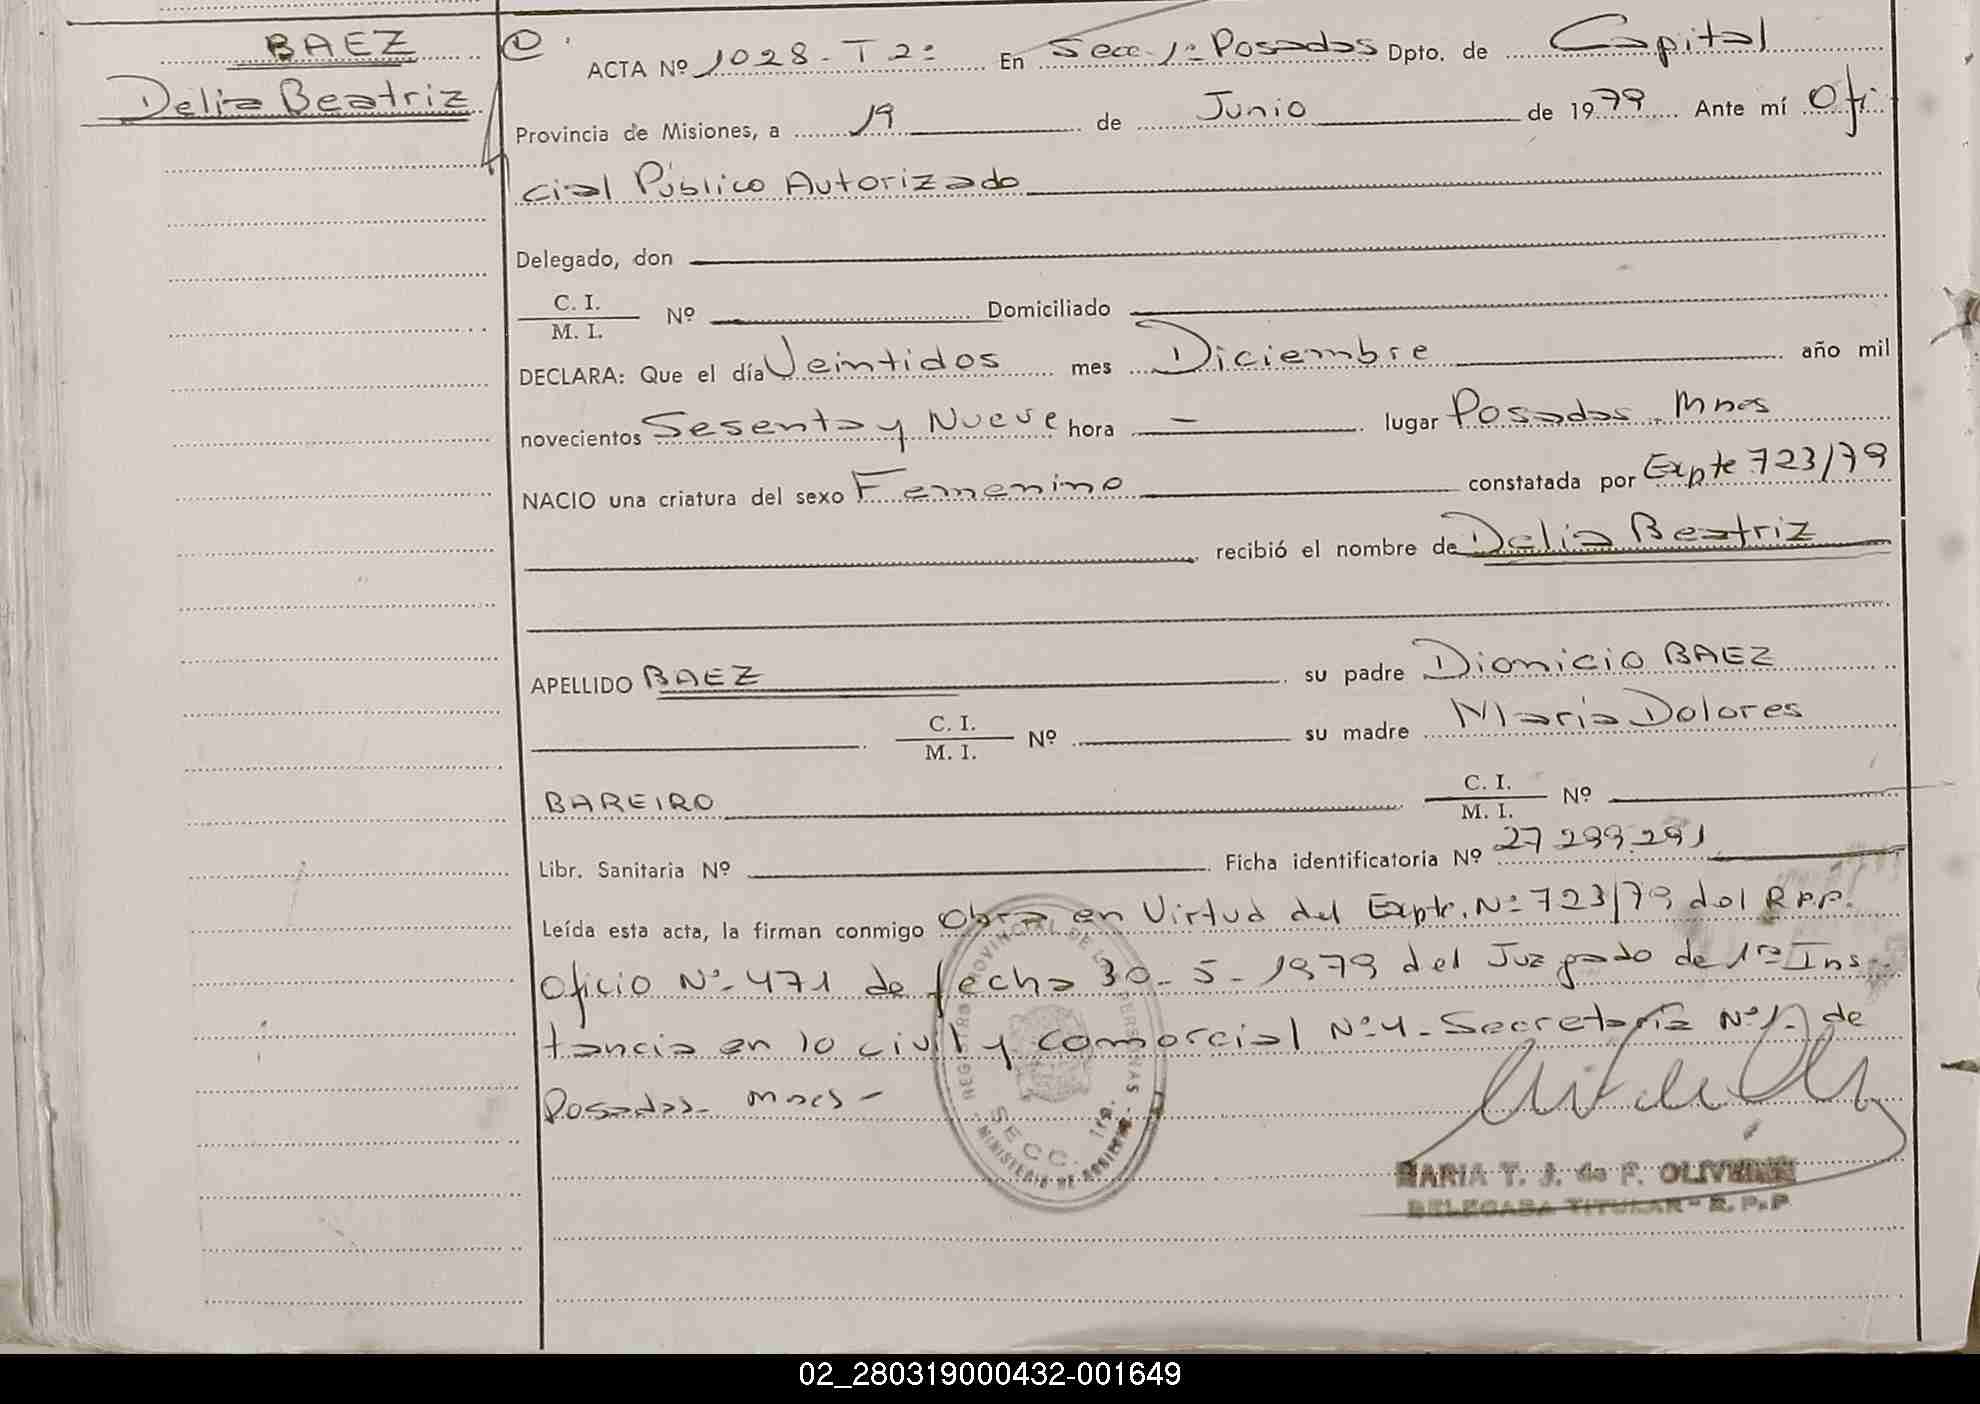 BAEZ
Delia Beatriz
ACTA Nº 1028 - T 2º En Secc 1º Posadas Dpto. de Capital
Provincia de Misiones, a 19 de Junio de 1979 Ante mí Ofi
cial Público Autorizado
Delegado, don
C. I.
M. I.
Nº Domiciliado
DECLARA: Que el día Veintidos mes Diciembre año mil
novecientos Sesenta y Nueve hora - lugar Posadas - Mnes
NACIO una criatura del sexo Femenino constatada por Expte 723/79
recibió el nombre de Delia Beatriz
APELLIDO BAEZ su padre Dionicio BAEZ
C. I.
M. I.
Nº su madre Maria Dolores
BAREIRO
C. I.
M. I.
Nº
Libr. Sanitaria Nº Ficha identificatoria Nº 27 299.291
Leída esta acta, la firman conmigo Obra en Virtud del Expte. Nº 723/79 del R.P.P.
Oficio Nº 471 de fecha 30 - 5 - 1979 del Juzgado de 1ra Ins-
tancia en lo civil y comercial Nº 4 - Secretaría Nº 1 - de
Posadas - Mnes -
REGISTRO PROVINCIAL DE LAS PERSONAS
SECC. 1ra.
MINISTERIO DE GOBIERNO
MARIA T. J. de F. OLIVEIRA
DELEGADA TITULAR - R. P. P
02_280319000432-001649